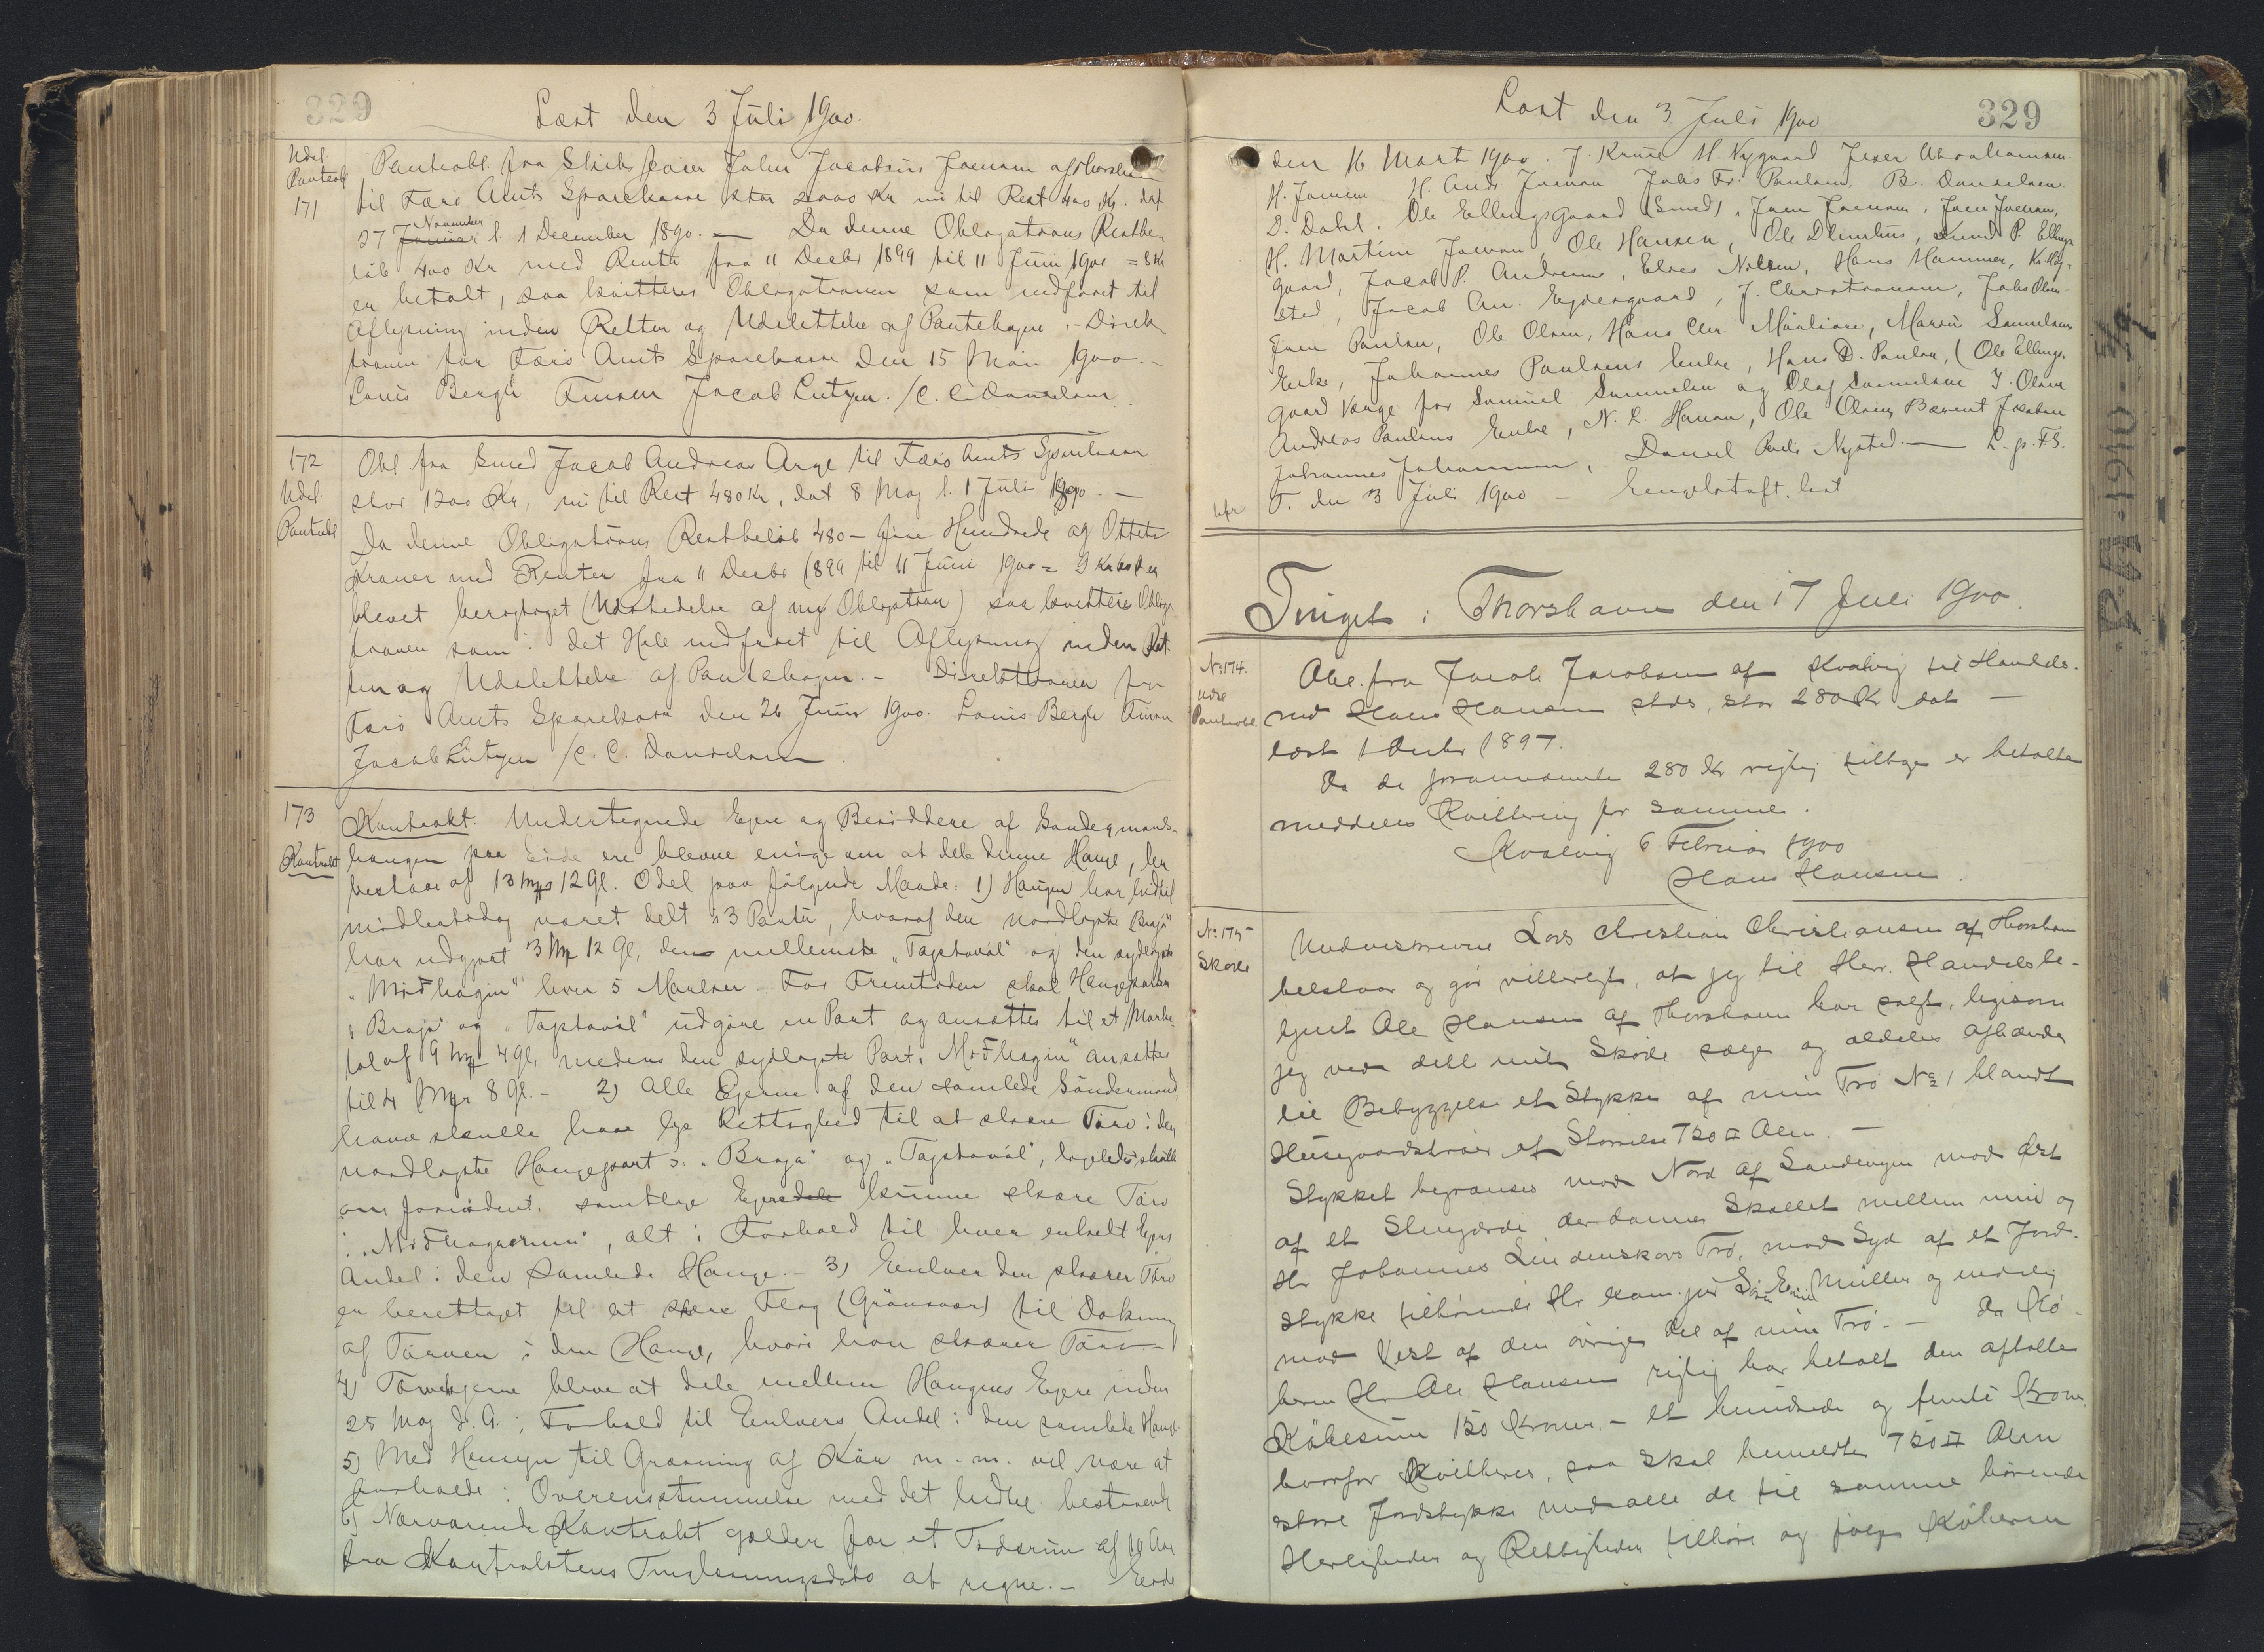 329
Læst den 3 Juli 1900.
Udsl.
Panteobl
171
Panteobl. fra Skibstjener John Jacobsen Joensen af Thorshavn
til Færø Amts Sparekasse stor 2000 Kr nu til Rest 400 Kr. dat
27 Januar November l. 1 December 1890. — Da denne Obligations Restbe-
løb 400 Kr med Rente fra 11 Decbr 1899 til 11 Juni 1900 = 8 Kr
er betalt, saa kvitteres Obligationen som indfriet til
Aflysning inden Retten og Udslettelse af Pantebogen. – Direk-
tionen for Færø Amts Sparekasse den 15 Juni 1900. –
Louis Bergh Finsen Jacob Lützen. /C. C. Danielsen
172
Udsl.
Panteobl
Obl fra Smed Jacob Andreas Arge til Færø Amts Sparekasse
stor 1200 Kr, nu til Rest 480 Kr, dat 8 Maj l. 1 Juli 1890. —
Da denne Obligations Restbeløb 480 – fire Hundrede og Otteti
Kroner med Renter fra 11 Decbr 1899 til 11 Juni 1900 = 9 Kr 60 Ø er
blevet berigtiget (Udstedelse af ny Obligation) saa kvitteres Obliga-
tionen som i det Hele indfriet til Aflysning inden Ret-
ten og Udslettelse af Pantebogen. – Direktionen for
Færø Amts Sparekasse den 26 Juni 1900. Louis Bergh Finsen
Jacob Lützen /C. C. Danielsen
173
Kontrakt
Kontrakt. Undertegnede Ejere og Besiddere af Søndermands-
haugen paa Eide ere blevne enige om at dele denne Hauge, der
bestaar af 13 Mrk 12 Gl. Odel paa følgende Maade: 1) Haugen har hidtil
midlertidig været delt i 3 Parter, hvoraf den nordligste "Brajá"
har udgjort 3 Mrk 12 Gl, den mellemste "Tapstavál" og den sydligste
"Miðhagin" hver 5 Marker. For Fremtiden skal Haugeparten
"Brajá" og "Tapstavál" udgøre en Part og ansættes til et Marke-
tal af 9 Mrk 4 Gl, medens den sydligste Part, "Miðhagin" ansættes
til 4 Mrk 8 Gl. – 2) Alle Ejerne af den samlede Søndermands
hauge skulle have lige Rettighed til at skære Tørv i den
nordligste Haugepart ɔ: "Brajá" og "Tapstavál", ligeledes skulle
om fornødent, samtlige Ejere dele kunne skære Tørv
i "Miðhagnanum", alt i Forhold til hver enkelt Ejers
Andel i den samlede Hauge. – 3) Enhver der skærer Tørv
er berettiget til at skære Flag (Grønsvær) til Dækning
af Tørven i den Hauge, hvori han skærer Tørv –
4) Tørvelejerne blive at dele mellem Haugens Ejere inden
25 Maj d. A. i Forhold til Enhvers Andel i den samlede Hauge.
5) Med Hensyn til Græsning af Køer m. m. vil være at
forholde i Overensstemmelse med det hidtil bestaaende
6) Nærværende Kontrakt gælder for et Tidsrum af 10 Aar
fra Kontraktens Tinglæsningsdato at regne. – Eide
Læst den 3 Juli 1900
329
den 16 Marts 1900. J. Kruse M. Nygaard Joen Abrahamsen.
H. Joensen H. Andr Joensen Johs Fr. Poulsen. B. Danielsen.
D. Dahl. Ole Ellingsgaard (Smed), Joen Joensen, Joen Joensen,
H. Martin Joensen, Ole Hansen, Ole Debes, P. Ellings-
gaard, Jacob P. Andersen, Elias Nolsøe, Hans Hammer, Kr. Høj-
sted, Jacob An. Egdesgaard, J. Christiansen, Johs Olsen
Joen Poulsen, Ole Olsen, Hans Chr. Müller, Maren Samuelsens
Enke, Johannes Poulsens Enke, Hans D. Poulsen, (Ole Ellings-
gaard Værge for Samuel Samuelsen og Olaf Samuelsen J. Olsen
Andreas Poulsens Enke, N. L. Hansen, Ole Olsens Barent Jacobsen
Johannes Johannesen, Daniel Pauli Nysted. — L. p. F. S.
T. den 3 Juli 1900 –
Tinget i Thorshavn den 17 Juli 1900.
No 174.
Udsl
Panteobl.
Obl. fra Jacob Jacobsen af Kvalvig til Handels-
md Hans Hansen stds, stor 280 Kr dat —
læst 1 Decbr 1897.
Da de forannævnte 280 Kr rigtig tilbage er betalte
meddeles Kvittering for samme.
Kvalvig 6 Februar 1900
Hans Hansen.
No 175
Skøde
Underskrevne Lars Christian Christiansen af Thorshavn
tilstaar og gør vitterligt, at jeg til Herr Handelsbe-
tjent Ole Hansen af Thorshavn har solgt, ligesom
jeg ved dette mit Skøde sælger og aldeles afhænder
til Bebyggelse et Stykke af min Trø No 1 blandt
Husegaardstrøer af Størrelse 720 □ Alen. —
Stykket begrænses mod Nord af Landevejen mod Øst
af et Stengjærde der danner Skellet mellem min og
Hr Johannes Lindenskovs Trø, mod Syd af et Jord-
stykke tilhørende Hr exam. jur S. E. Müller og endelig
mod Vest af den øvrige Del af min Trø. — Da Kø-
beren Hr Ole Hansen rigtig har betalt den aftalte
Købesum 150 Kroner. – et hundrede og femti Kroner
hvorfor kvitteres, saa skal bemeldte 720 □ Alen
store Jordstykke med alle de til samme hørende
Herligheder og Rettigheder tilhøre og følge Køberen